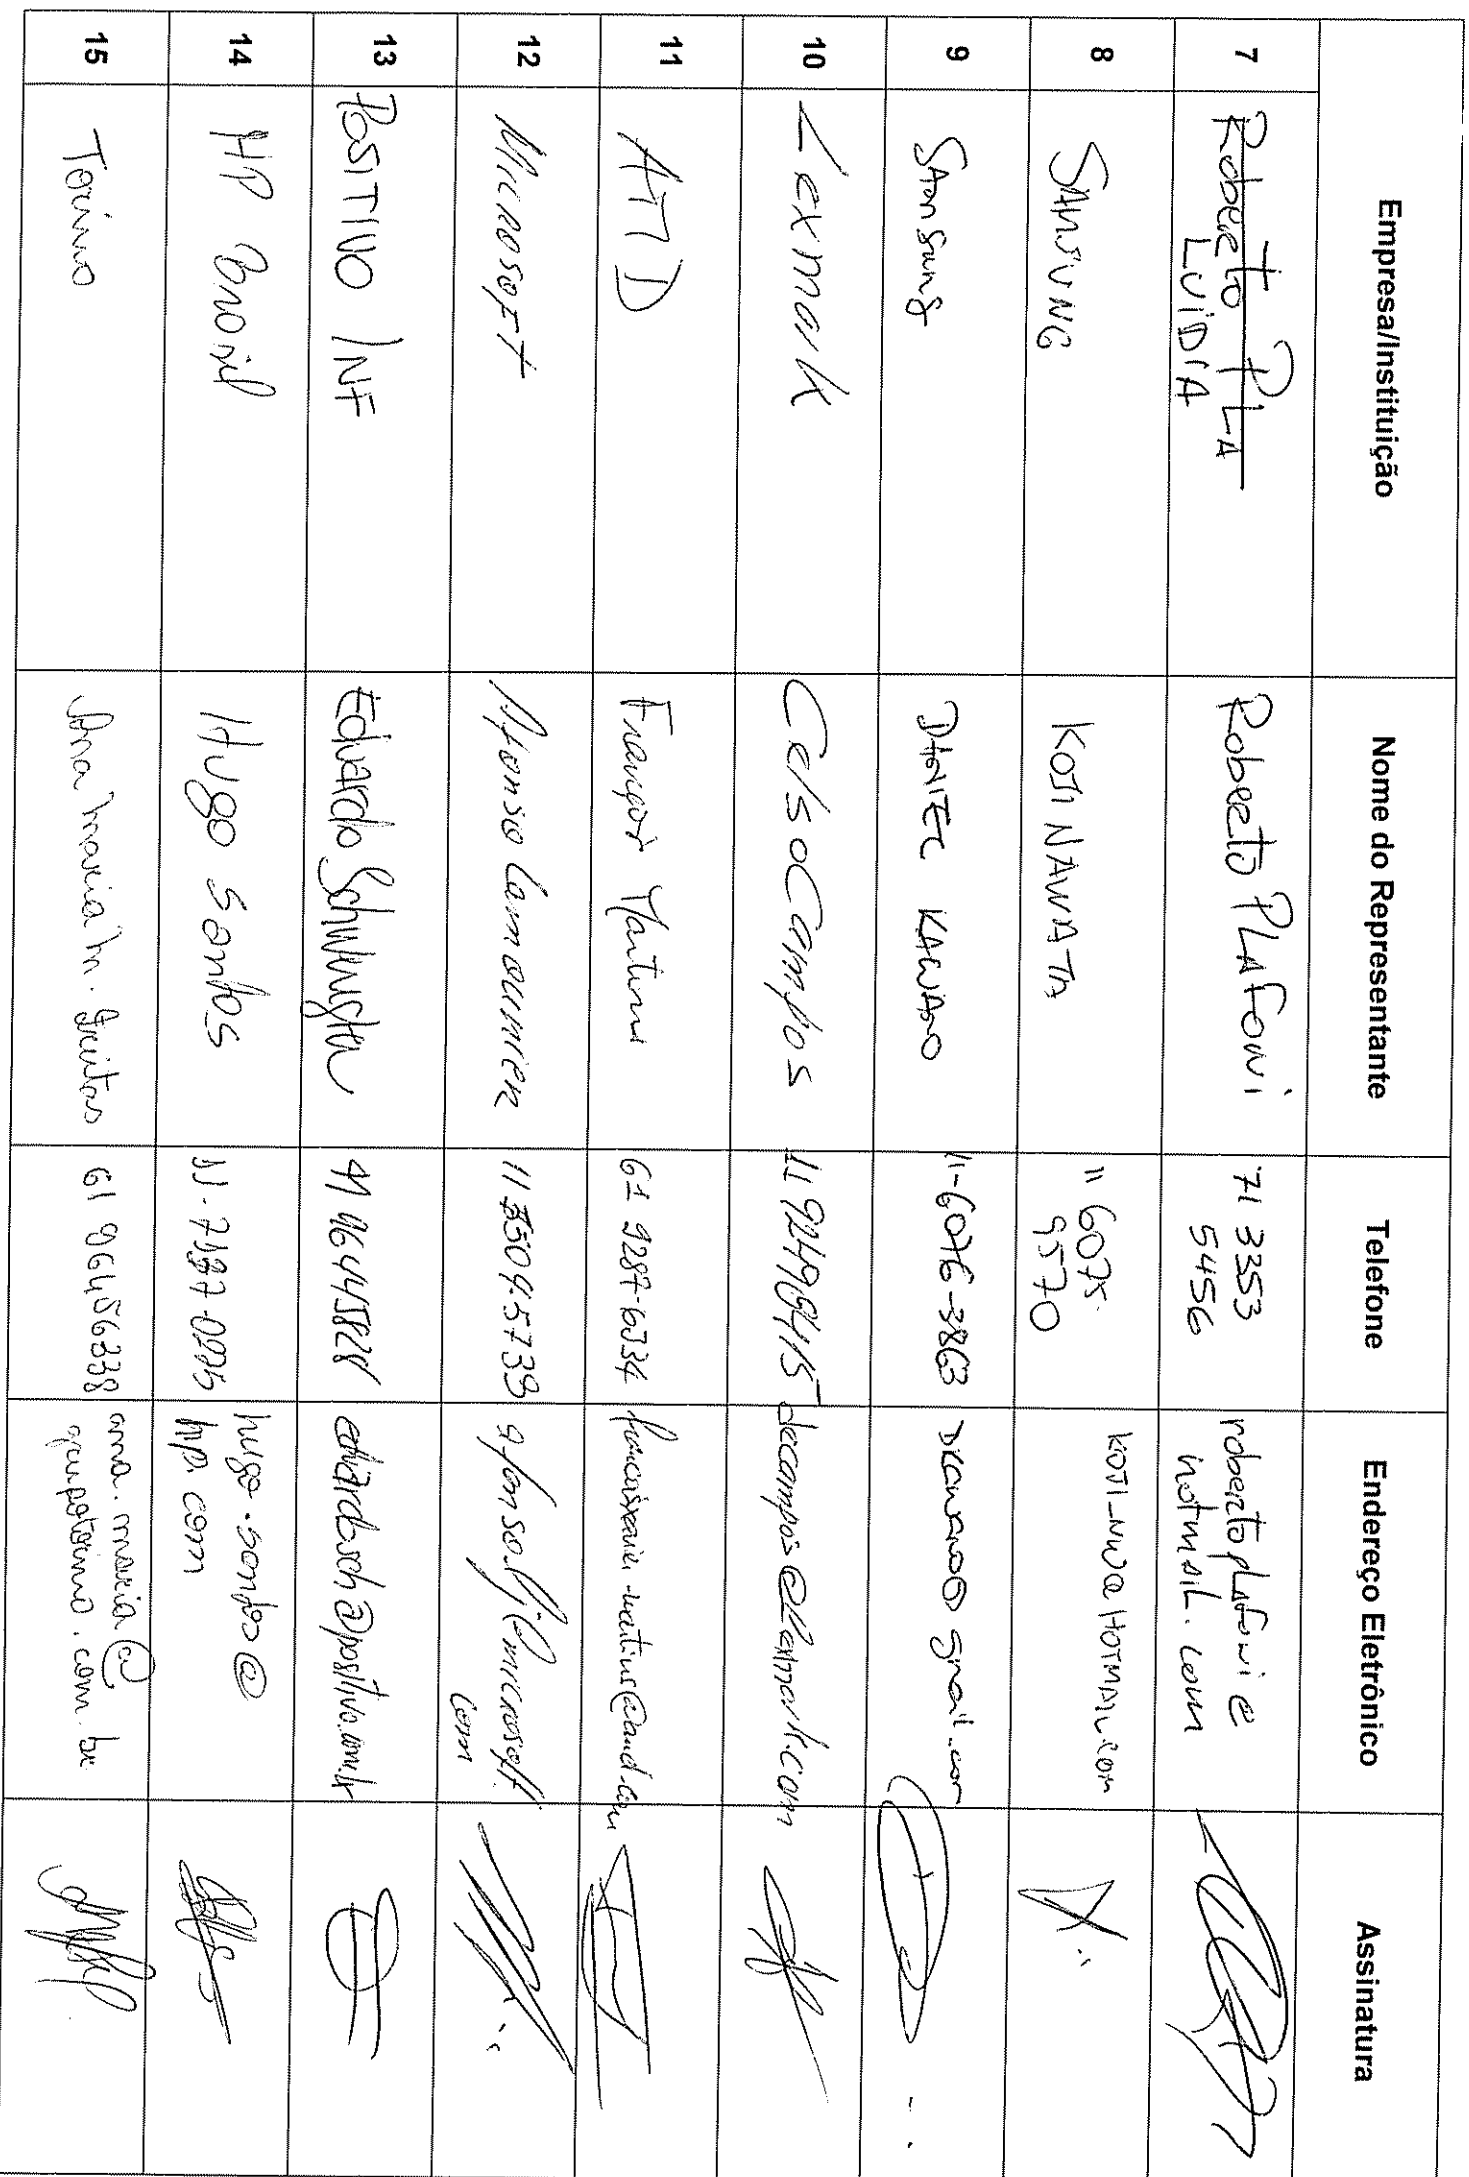 Empresa/Instituição Nome do Representante Telefone Endereço Eletrônico Assinatura
7 Roberto PLA Roberto PLAfoni 71 3353 robertoplafoni@
LUIDIA 5456 hotmail.com
8 SAMSUNG KOJI NAWATA 11 6075- KOJI_NW@HOTMAIL.COM
9570
9 SAMSung DANIEL KAWANO 11-6076-3863 gmail.com
10 Lexmark Celso Campos 11 924969415 decampos@lexmark.com
11 AMD François Martins 61 9287-6334 @amd.com
12 Microsoft Afonso Lamounier 11 5504.5739 afonsolj@microsoft.
com
13 POSITIVO INF Eduardo 41 96445828 eduardosch@positivo.com.br
14 HP Brasil Hugo Santos hugo.santos@
hp.com
15 Torino Ana Maria M. Freitas 61 ana.maria@
grupotorino.com.br